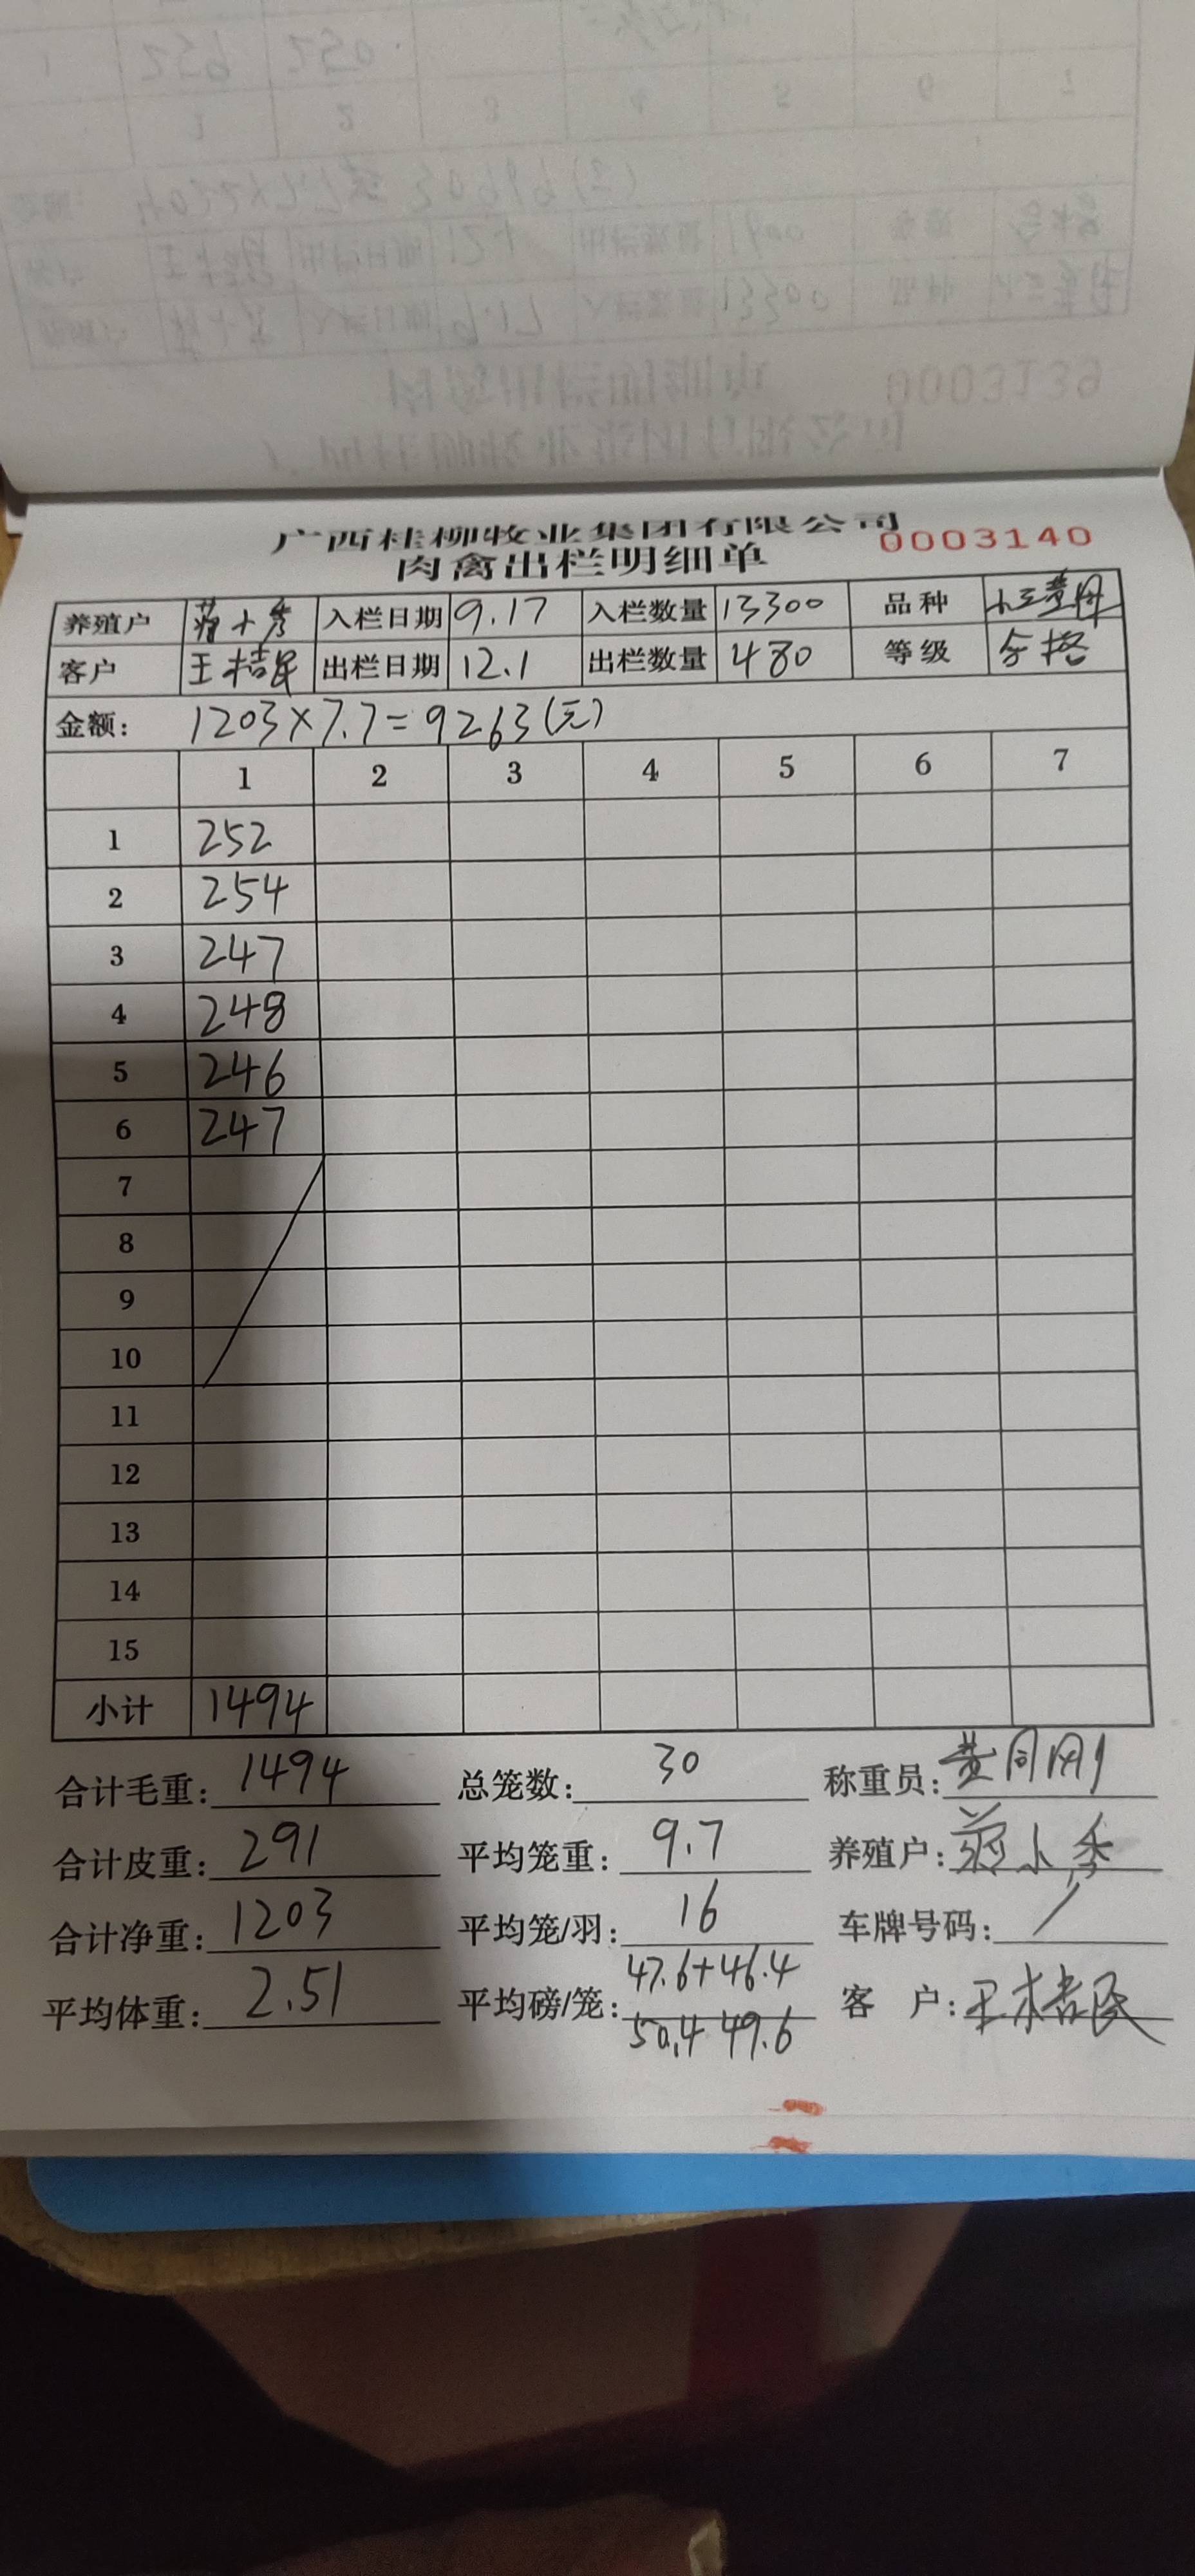 0003139
广西桂柳牧业集团有限公司
肉禽出栏明细单 0003140
养殖户 入栏日期 9.17 入栏数量 13300 品种
客户 王桔民 出栏日期 12.1 出栏数量 480 等级 合格
金额: 1203×7.7=9263(元)
1 2 3 4 5 6 7
1 252
2 254
3 247
4 248
5 246
6 247
7
8
9
10
11
12
13
14
15
小计 1494
合计毛重: 1494 总笼数: 30 称重员: 黄同刚
合计皮重: 291 平均笼重: 9.7 养殖户:
合计净重: 1203 平均笼/羽: 16 车牌号码: /
47.6+46.4
平均体重: 2.51 平均磅/笼: 客 户: 王桔民
50.4 49.6